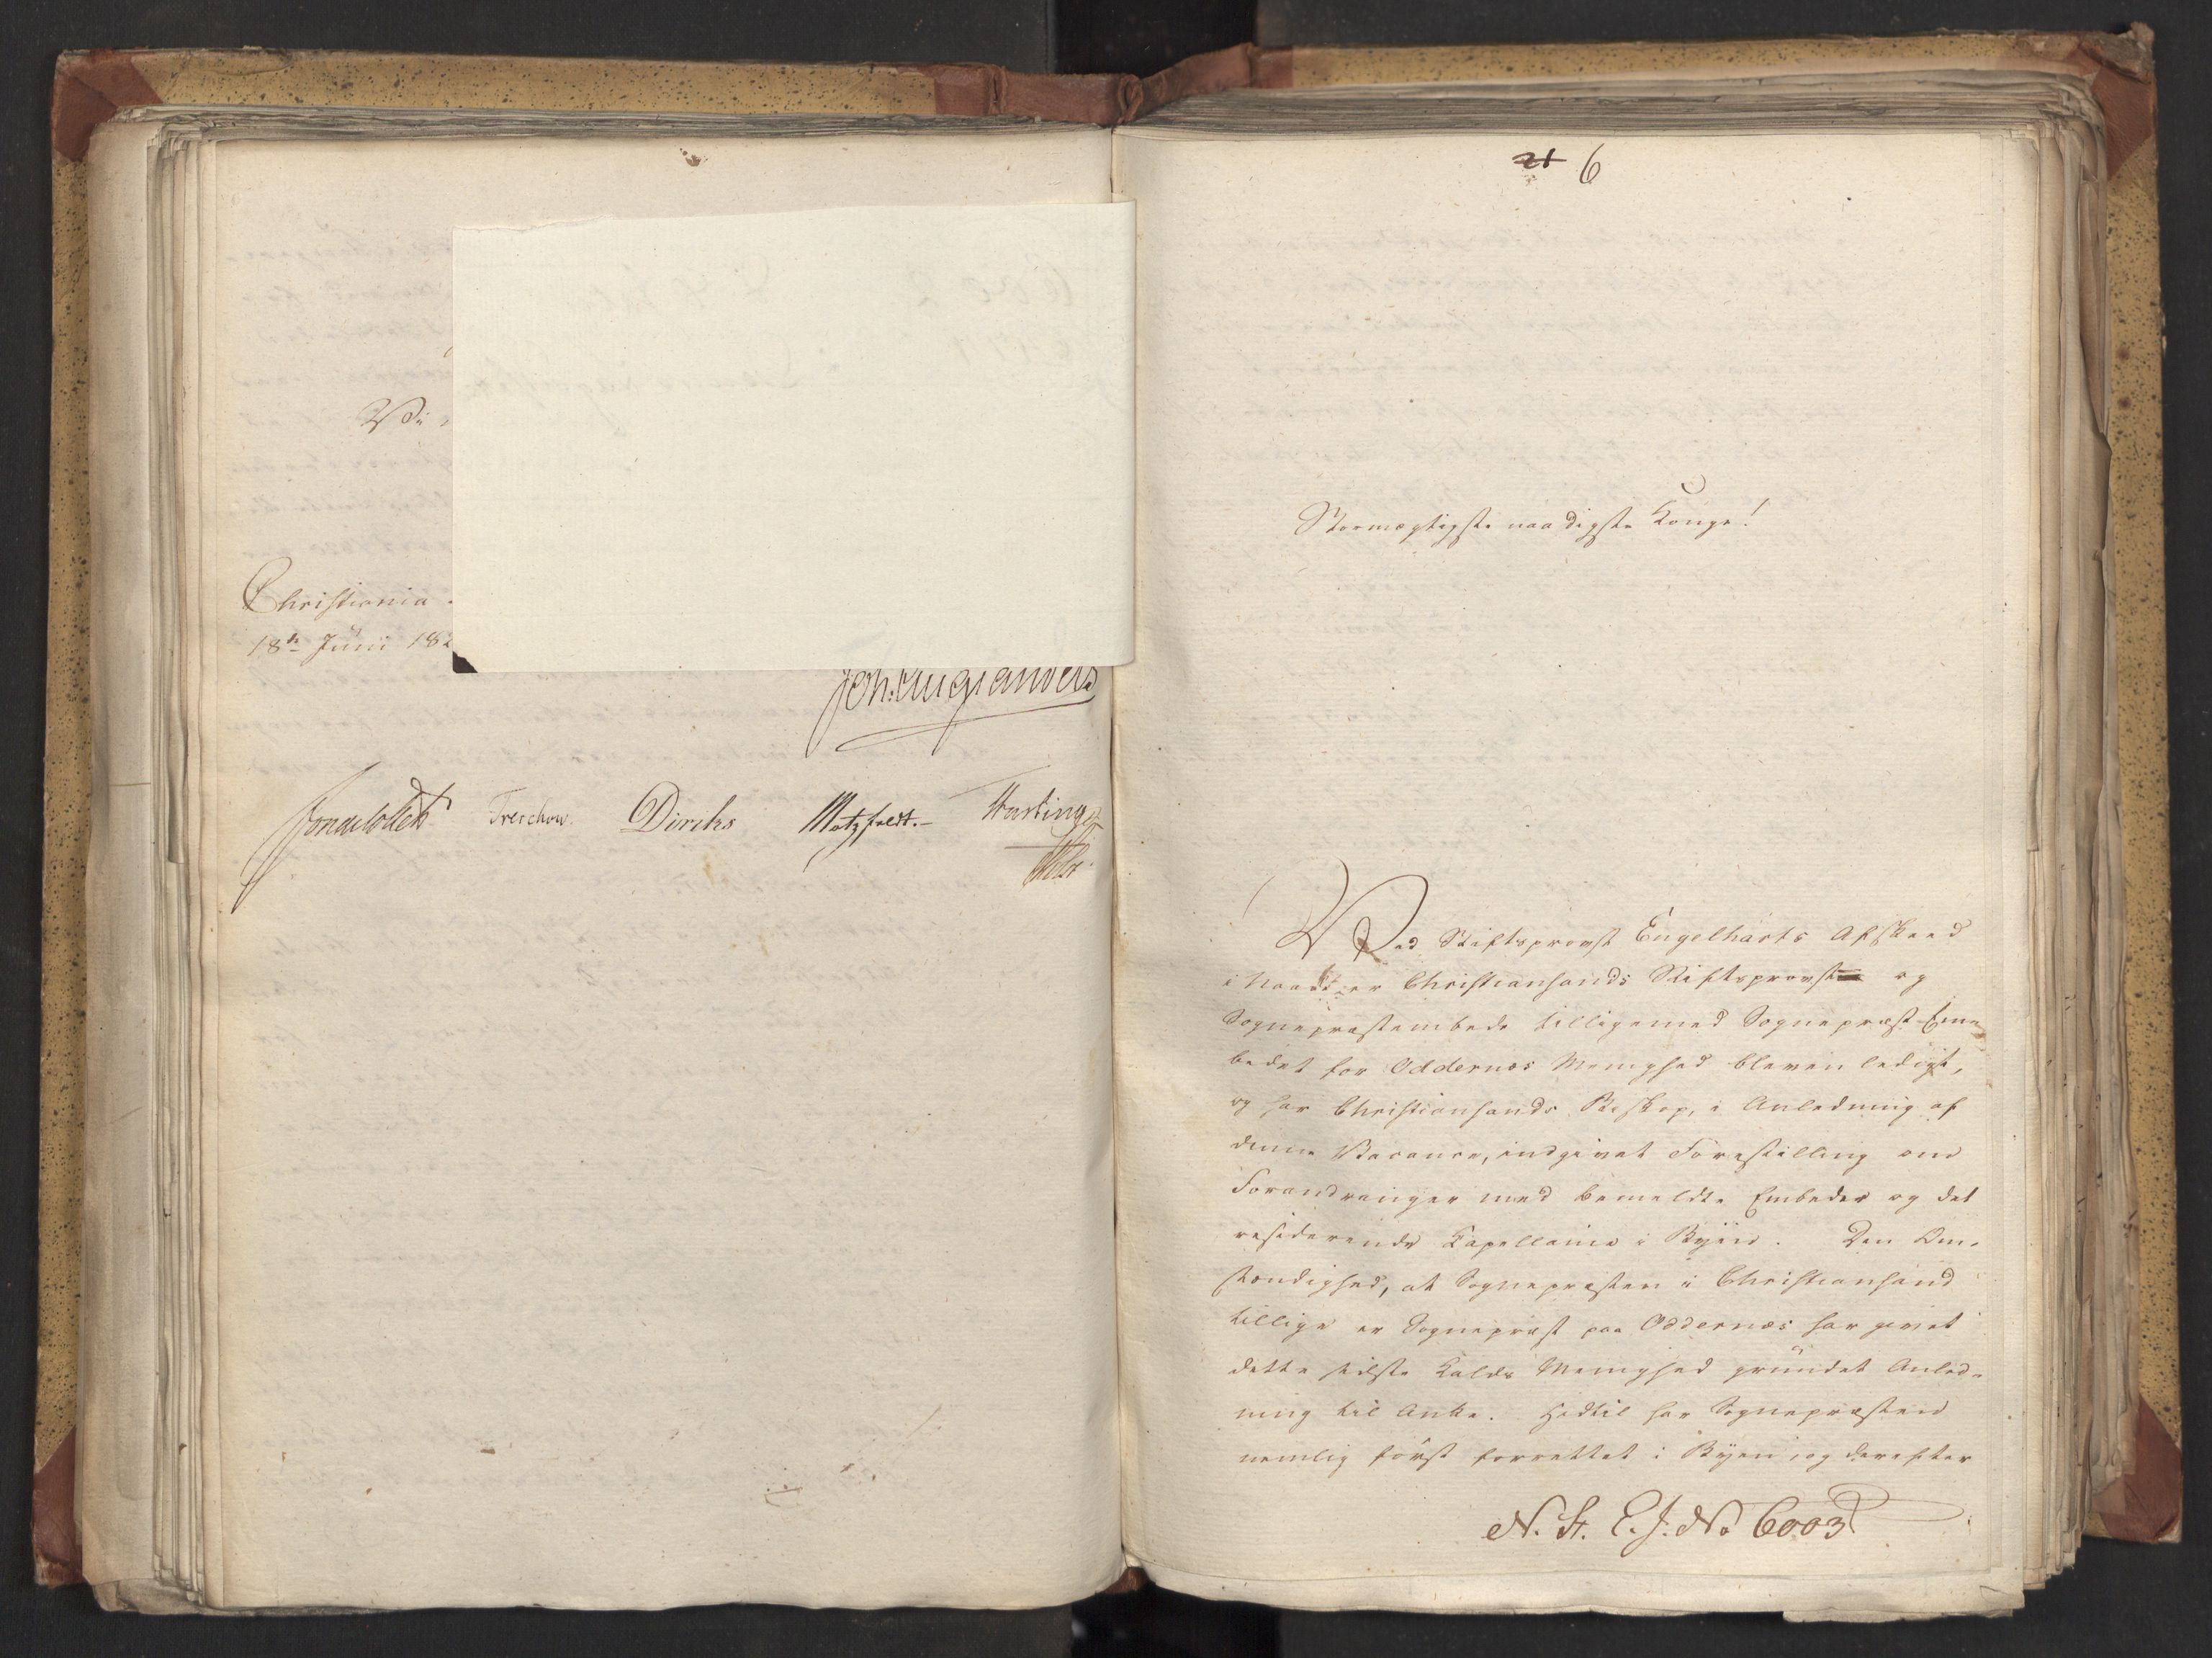 Vi
Christiania
18de Juni 182
Joh. Aug. Sandels
Sommerhielm Treschow Diriks Motzfeldt. Hasting
Holst
21 6
Stormægtigste naadigste Konge!
Ved Stiftsprovst Engelharts Afskeed
i Naade er Christiansands Stiftsprovst og
Sognepræstembede tilligemed Sognepræst-Em-
bedet for Oddernæs Menighed bleven ledigt,
og har Christiansands Biskop, i Anledning af
denne Vacance, indgivet Forestilling om
Forandringer med bemeldte Embeder og det
residerende Capellanie i Byen. Den Om-
stændighed, at Sognepræsten i Christiansand
tillige er Sognepræst paa Oddernæs har givet
dette sidste Kalds Menighed grundet Anled-
ning til Anke. Hidtil har Sognepræsten
nemlig først forrettet i Byen, og derefter
N. St. E. J. No 6003